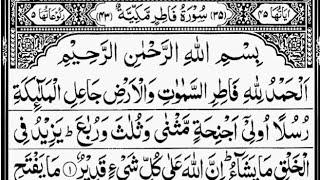 اٰيَاتُهَا ٤٥ (٣٥) سُوْرَةُ فَاطِرٍ مَّكِّيَّةٌ (٤٣) رُكُوْعَاتُهَا ٥
بِسْمِ اللّٰهِ الرَّحْمٰنِ الرَّحِيْمِ
اَلْحَمْدُ لِلّٰهِ فَاطِرِ السَّمٰوٰتِ وَالْاَرْضِ جَاعِلِ الْمَلٰٓئِكَةِ
رُسُلًا اُولِيْٓ اَجْنِحَةٍ مَّثْنٰى وَثُلٰثَ وَرُبٰعَ ؕ يَزِيْدُ فِى
الْخَلْقِ مَا يَشَآءُ ؕ اِنَّ اللّٰهَ عَلٰى كُلِّ شَىْءٍ قَدِيْرٌ ﴿١﴾ مَا يَفْتَحِ